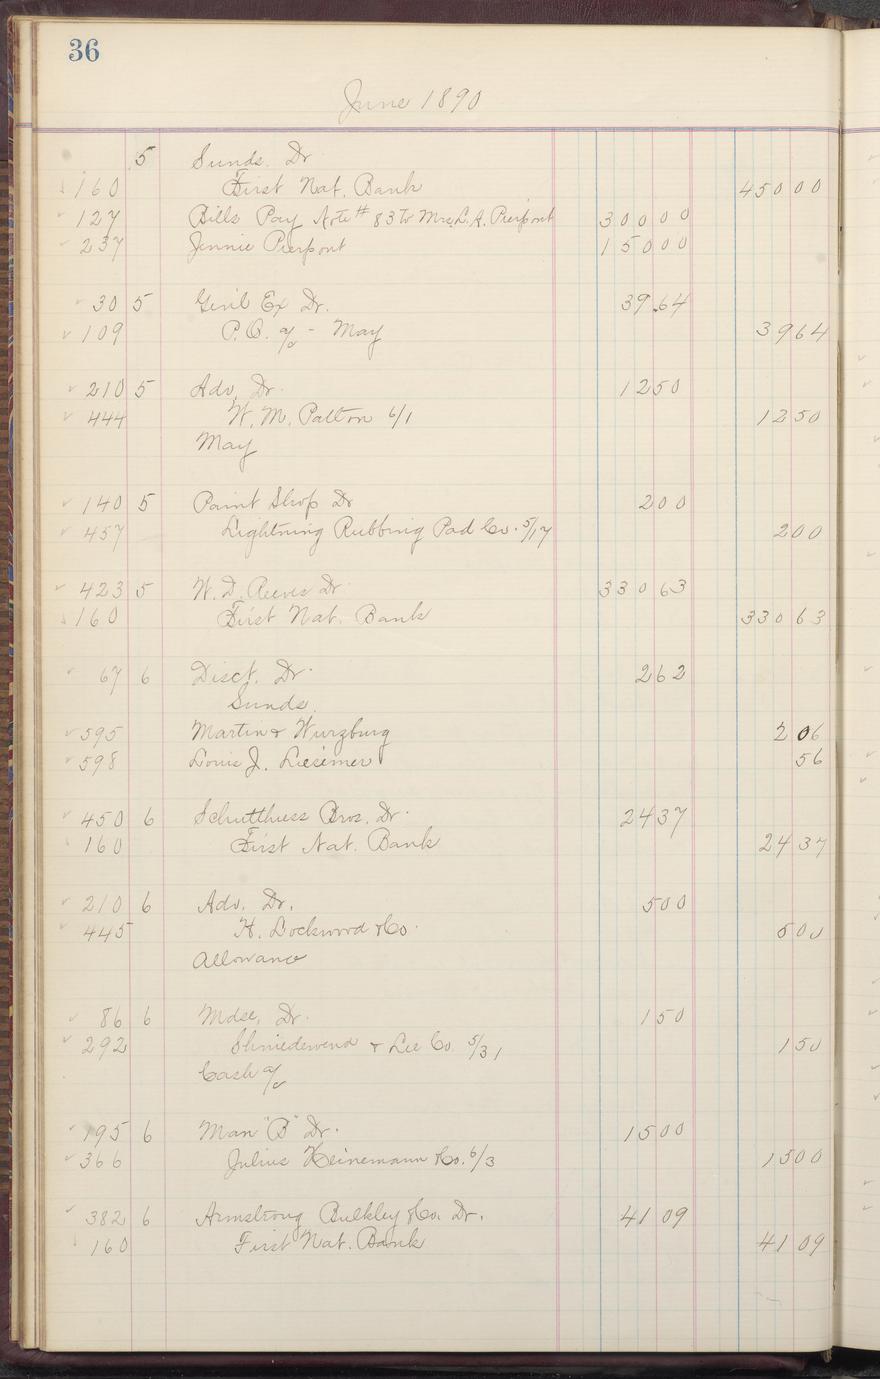 36
June 1890
5 Sunds. Dr
160 First Nat. Bank 450 00
127 Bills Pay Note # 83 to Mrs. L. A. Pierpont 300 00
237 Jennie Pierpont 150 00
30 5 Genl Ex Dr. 39.64
109 P.O. a/c - May 39 64
210 5 Adv. Dr. 12 50
444 W. M. Patton 6/1 12 50
May
140 5 Paint Shop Dr 2 00
457 Lightning Rubbing Pad Co. 5/17 2 00
423 5 W. D. Reeves Dr. 330 63
160 First Nat. Bank 330 63
67 6 Disct. Dr. 2 62
Sunds.
595 Martin & Wurzburg 2 06
598 Louis J. Liesemer 56
450 6 Bros. Dr. 24 37
160 First Nat. Bank 24 37
210 6 Adv. Dr. 5 00
445 H. Lockwood & Co. 5 00
Allowance
86 6 Mdse. Dr. 1 50
292 & Lee Co. 5/31 1 50
Cash a/c
195 6 Man "B" Dr. 15 00
366 Julius Heinemann & Co. 6/3 15 00
382 6 Armstrong Bulkley & Co. Dr. 41 09
160 First Nat. Bank 41 09